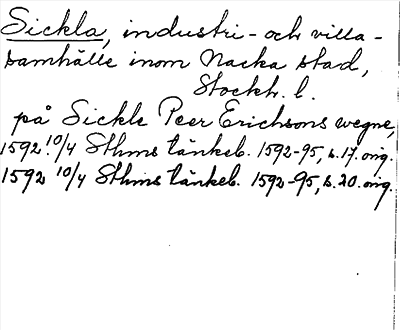 Sickla, industri- och villa-
samhälle inom Nacka stad,
Stockh. l.
på Sickle Peer Erichsons wegne,
1592 10/4 Sthms tänkeb. 1592-95, s. 17. orig.
1592 10/4 Sthms tänkeb. 1592-95, s. 20. orig.